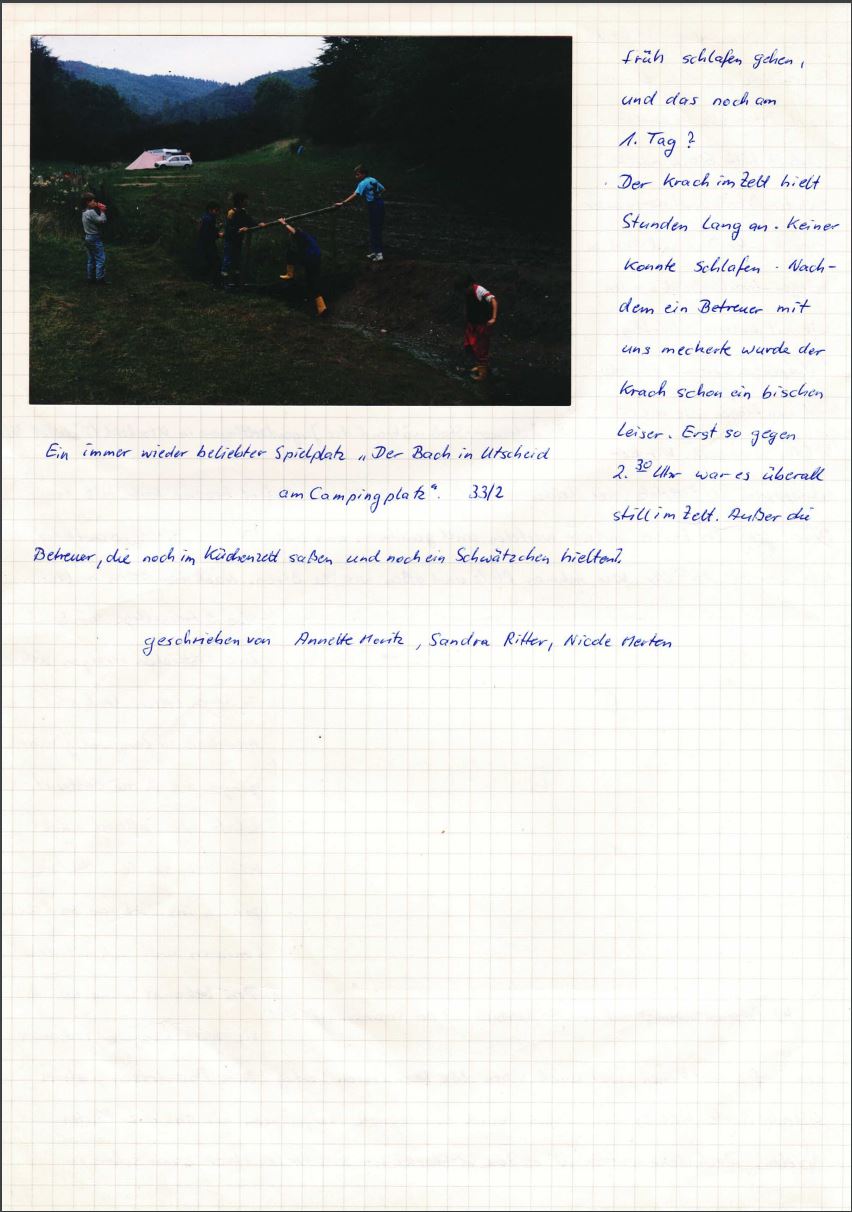 früh schlafen gehen,
und das noch am
1. Tag?
Der Krach im Zelt hielt
Stunden Lang an. Keiner
konnte Schlafen. Nach-
dem ein Betreuer mit
uns meckerte wurde der
Krach schon ein bischen
Leiser. Erst so gegen
2.30 Uhr war es überall
still im Zelt. Außer die
Betreuer, die noch im Küchenzelt saßen und noch ein Schwätzchen hielten.
Ein immer wieder beliebter Spielplatz „Der Bach in Utscheid
am Campingplatz“. 33/2
geschrieben von Annette Moritz, Sandra Ritter, Nicole Merten